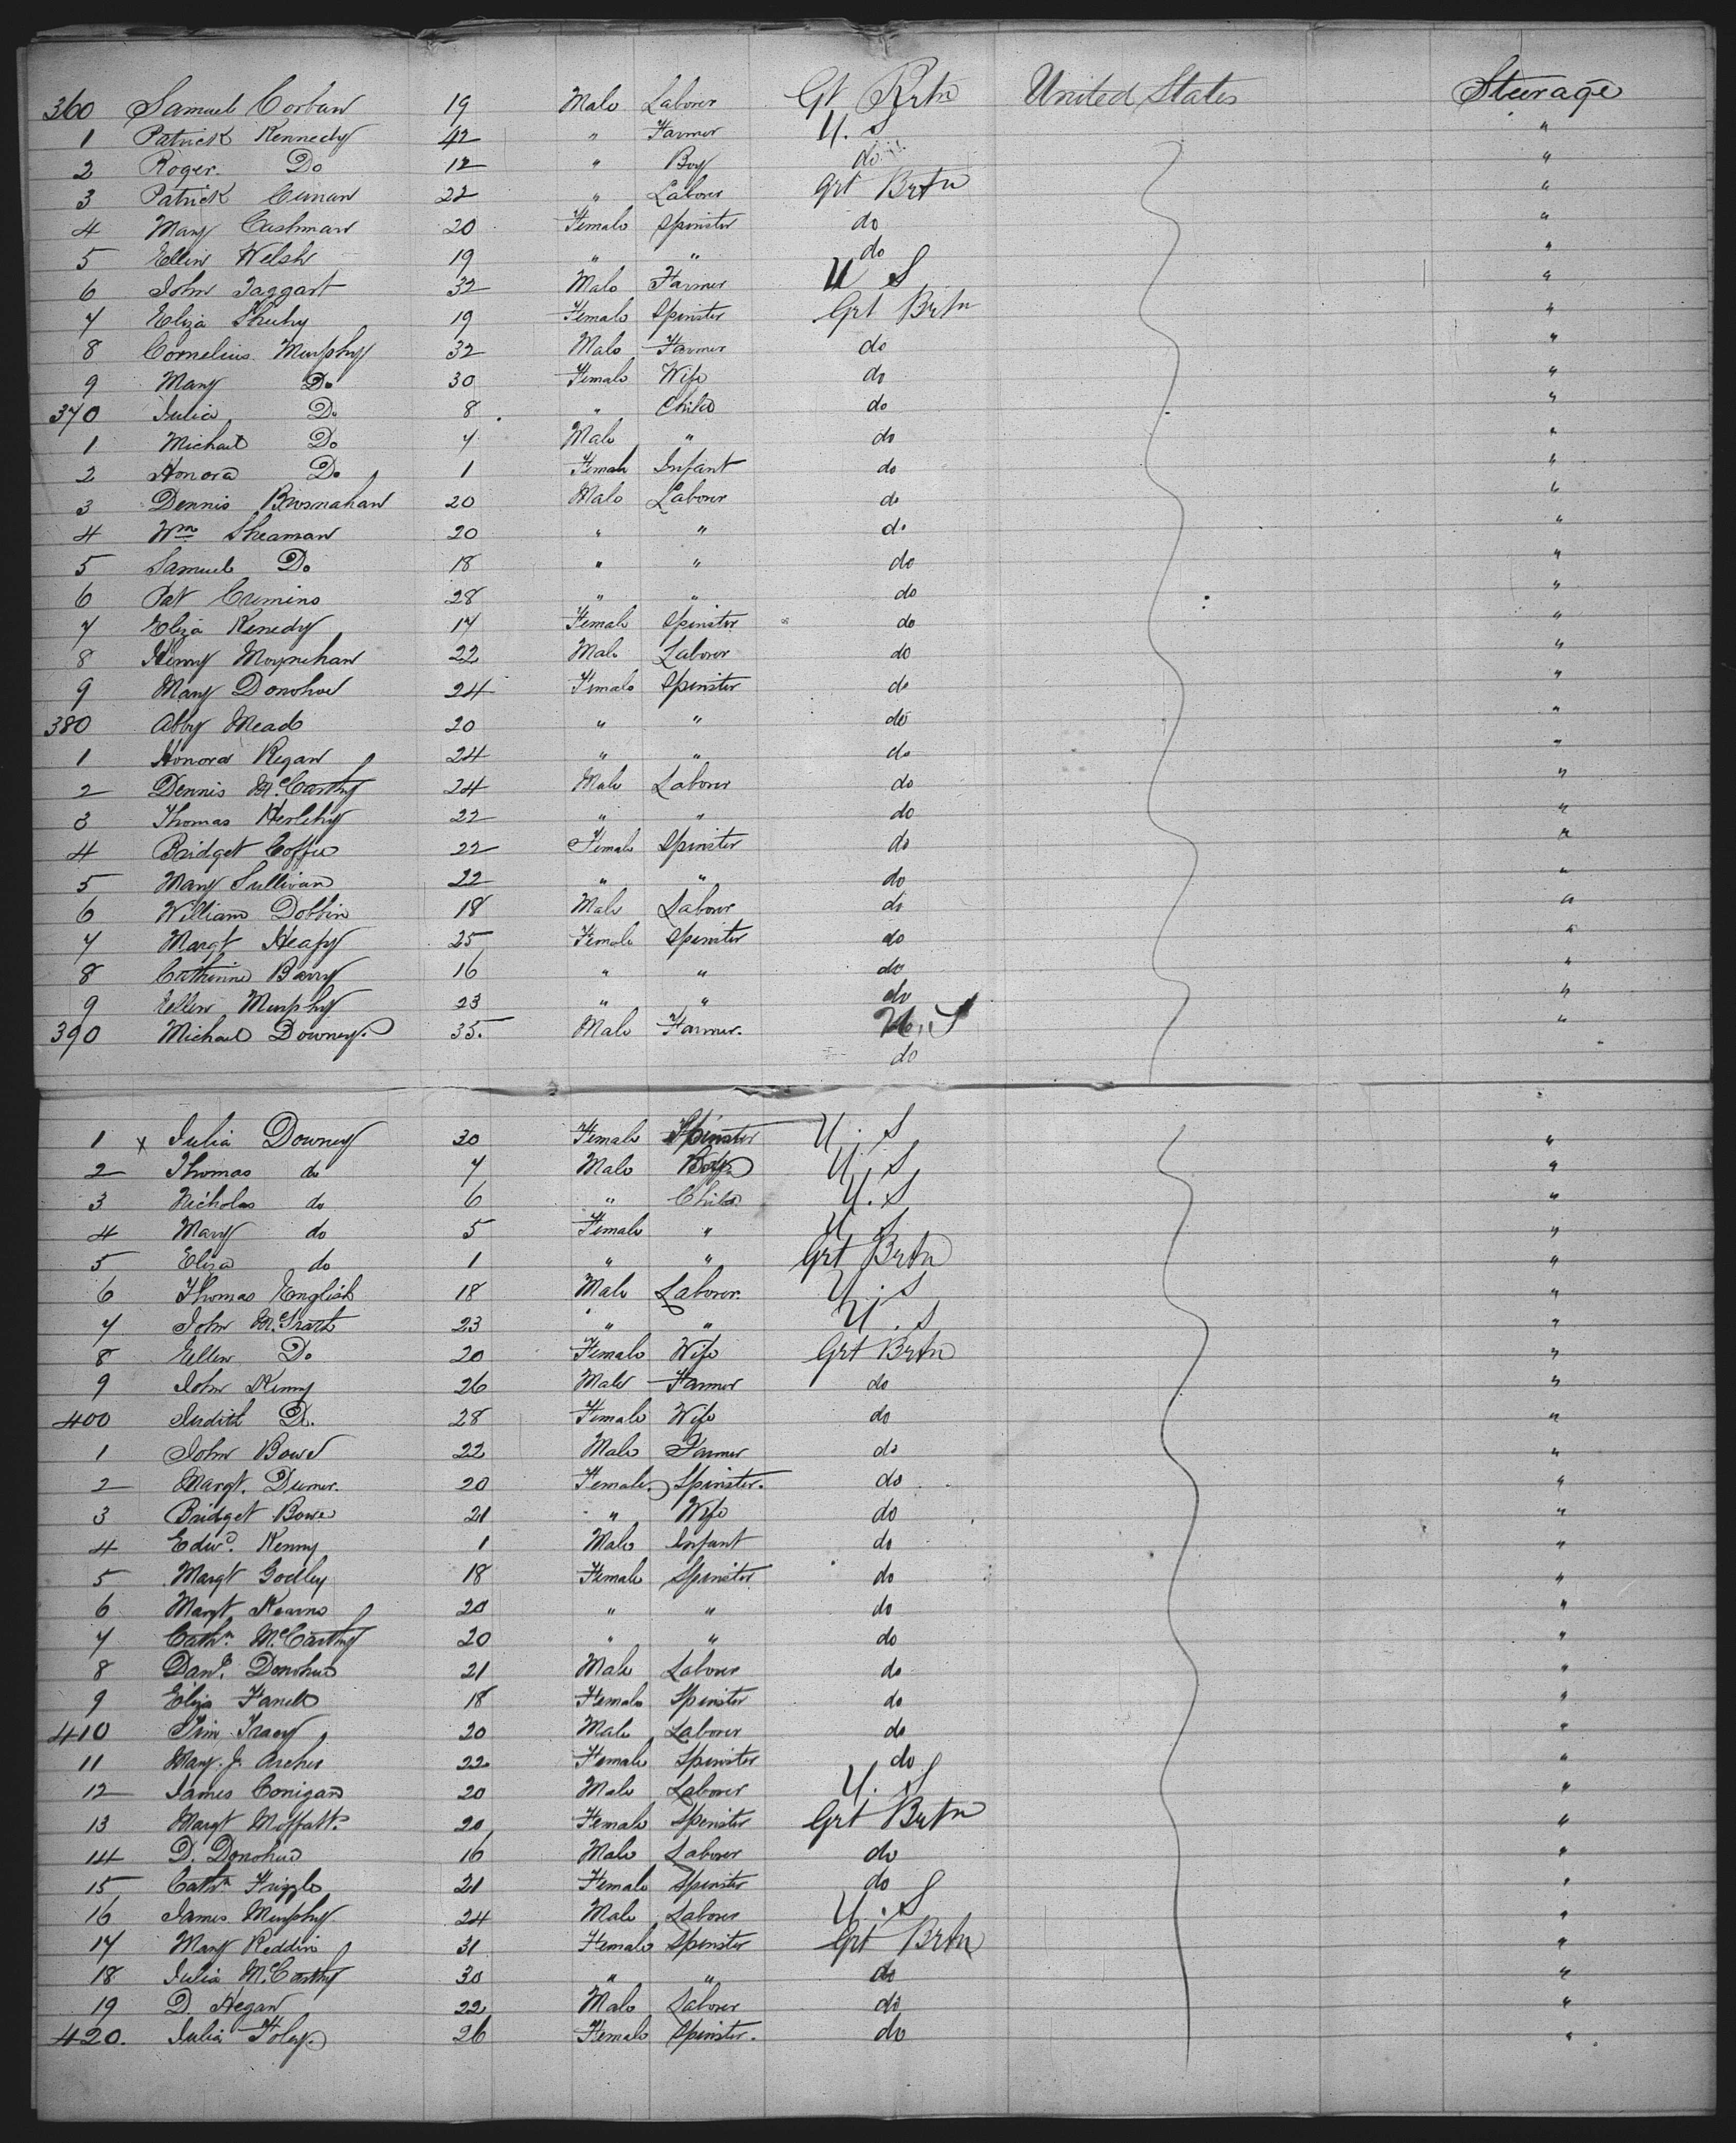 360 Samuel Corban 19 Male Laborer Gt Brtn United States Steerage
1 Patrick Kennedy 42 " Farmer U. S "
2 Roger Do 12 " Boy do "
3 Patrick 22 " Laborer Grt Brtn "
4 Mary Cashman 20 Female Spinster do "
5 Ellen Welsh 19 " " do "
6 John Taggart 32 Male Farmer U S "
7 Eliza Sheehy 19 Female Spinster Grt Brtn "
8 Cornelius Murphy 32 Male Farmer do "
9 Mary Do 30 Female Wife do "
370 Julia Do 8 " Child do "
1 Michael Do 7 Male " do "
2 Honora Do 1 Female Infant do "
3 Dennis Brosnahan 20 Male Laborer do "
4 Wm Sheaman 20 " " do "
5 Samuel Do 18 " " do "
6 Pat Cremins 28 " " do "
7 Eliza Kenedy 17 Female Spinster do "
8 Henry Moynehan 22 Male Laborer do "
9 Mary Donohoe 24 Female Spinster do "
380 Abby Mead 20 " " do "
1 Honora Regan 24 " " do "
2 Dennis McCarthy 24 Male Laborer do "
3 Thomas Herlehy 22 " " do "
4 Bridget Coffee 22 Female Spinster do "
5 Mary Sullivan 22 " " do "
6 William Dobbin 18 Male Laborer do "
7 Margt Heafy 25 Female Spinster do "
8 Catherine Barry 16 " " do "
9 Ellen Murphy 23 " " do "
390 Michael Downey 35. Male Farmer. U. S "
do
1 x Julia Downey 30 Female Spinster U. S "
2 Thomas do 7 Male Boy U. S "
3 Nicholas do 6 " Child U. S "
4 Mary do 5 Female " U S "
5 Eliza do 1 " " Grt Brtn "
6 Thomas English 18 Male Laborer. U. S "
7 John McGrath 23 " " U. S "
8 Ellen Do 20 Female Wife Grt Brtn "
9 John Kenny 26 Male Farmer do "
400 Judith Do. 28 Female Wife do "
1 John Bowe 22 Male Farmer do "
2 Margt. 20 Female Spinster. do "
3 Bridget Bowe 21 " Wife do "
4 Edwd. Kenny 1 Male Infant do "
5 Margt Godley 18 Female Spinster do "
6 Margt Kearns 20 " " do "
7 Cathn McCarthy 20 " " do "
8 Danl. Donohue 21 Male Laborer do "
9 Eliza 18 Female Spinster do "
410 Tim Tracy 20 Male Laborer do "
11 Mary J. Archer 22 Female Spinster do "
12 James Conigan 20 Male Laborer U. S "
13 Margt Moffatt. 20 Female Spinster Grt Brtn "
14 D. Donohue 16 Male Laborer do "
15 Cathn Frizzle 21 Female Spinster do "
16 James Murphy 24 Male Laborer U. S "
17 Mary Reddin 31 Female Spinster Grt Brtn "
18 Julia McCarthy 30 " " do "
19 D. Hegan 22 Male Laborer do "
420. Julia Foley 26 Female Spinster. do "